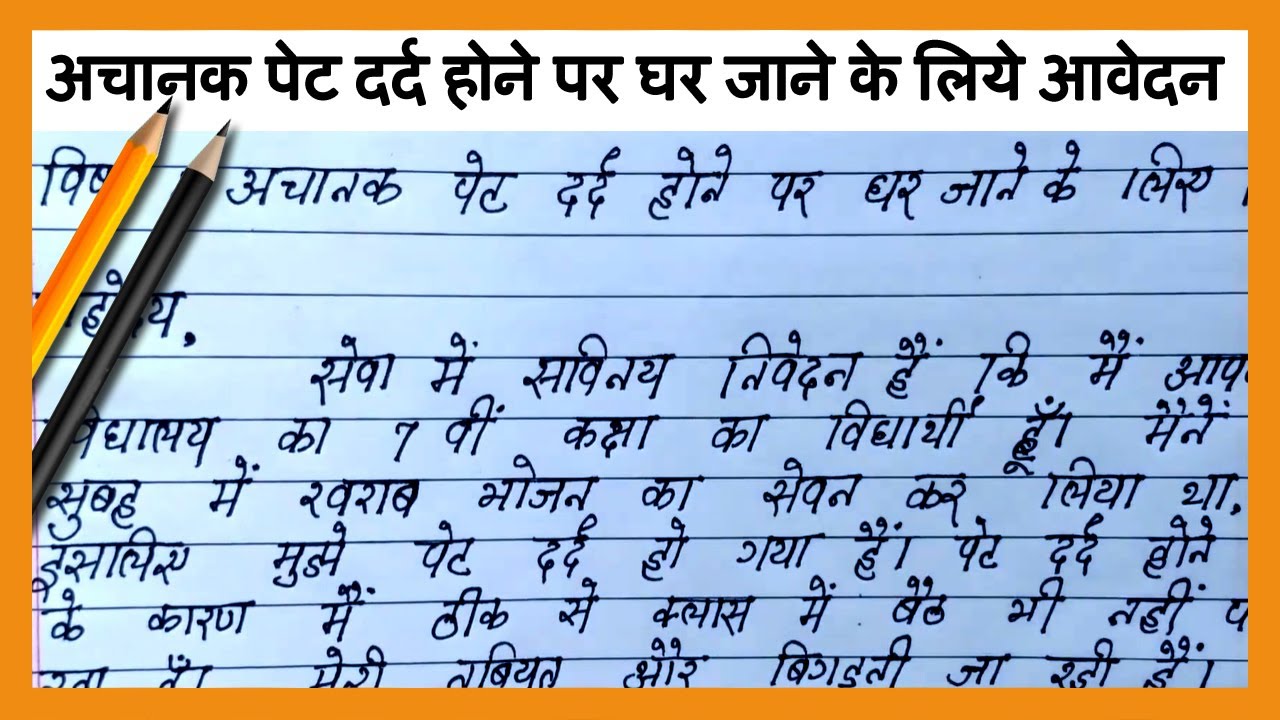 अचानक पेट दर्द होने पर घर जाने के लिये आवेदन
विष अचानक पेट दर्द होने पर घर जाने के लिए
महोदय,
सेवा में सविनय निवेदन हैं कि मैं आप
विद्यालय का 7 वीं कक्षा का विद्यार्थी हूँ। मैनें
सुबह में खराब भोजन का सेवन कर लिया था,
इसलिए मुझे पेट दर्द हो गया हैं। पेट दर्द होने
के कारण मैं ठीक से क्लास में बैठ भी नहीं
रहा हूँ। मेरी तबियत और बिगड़ती जा रही हैं।